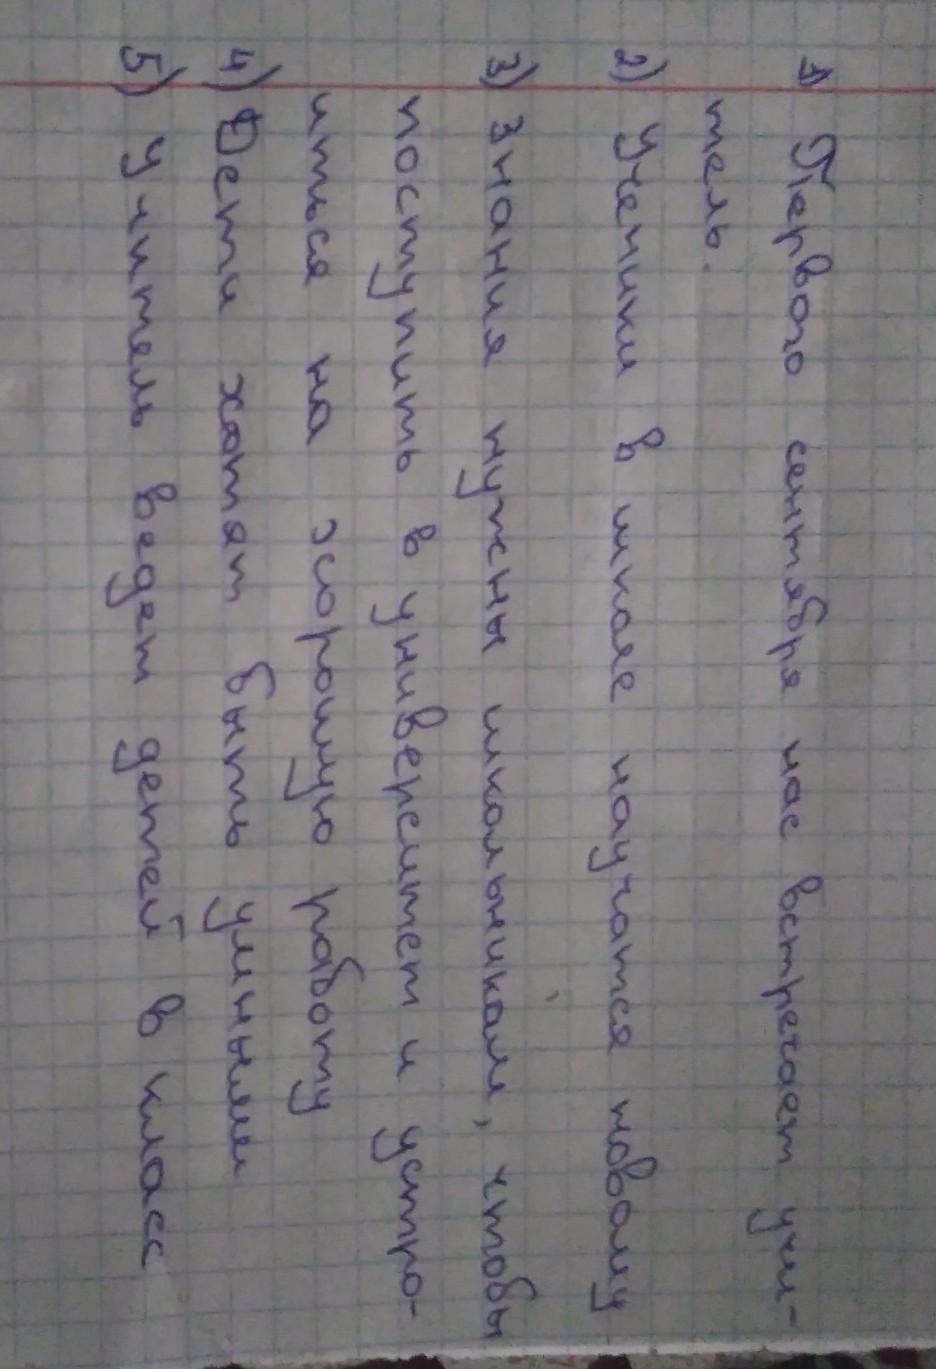 1) Первого сентября нас встречает учи-
тель.
2) Ученики в школе научатся новому
3) Знания нужны школьникам, чтобы
поступить в университет и устро-
иться на хорошую работу
4) Дети хотят быть умными
5) Учитель ведет детей в класс